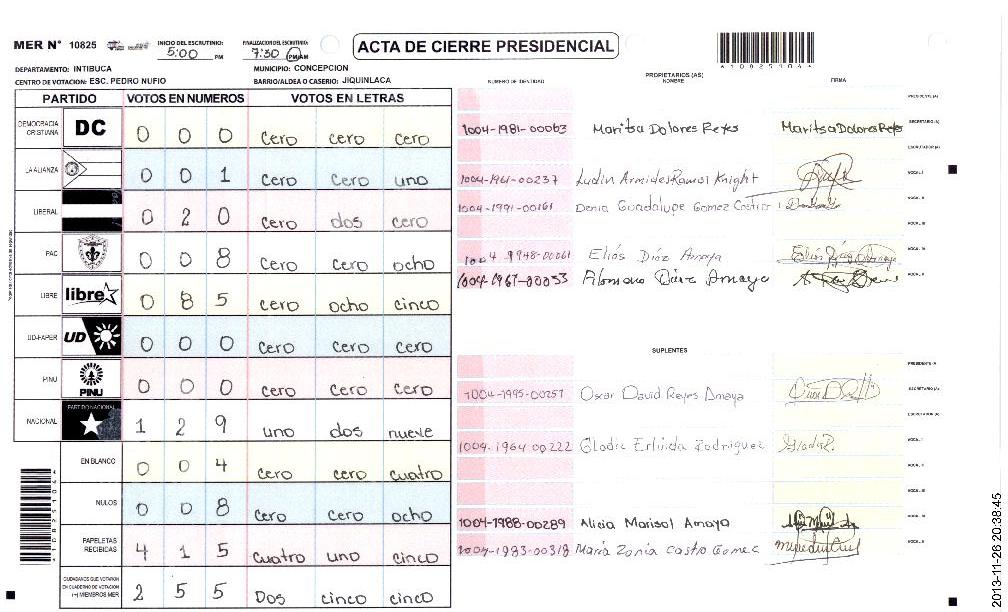 MER N° 10825
INICIO DEL ESCRUTINIO: 5:00 PM
FINALIZACION DEL ESCRUTINIO: 7:30 PM/AM
ACTA DE CIERRE PRESIDENCIAL
DEPARTAMENTO: INTIBUCA
MUNICIPIO: CONCEPCION
CENTRO DE VOTACION: ESC. PEDRO NUFIO
BARRIO/ALDEA O CASERIO: JIQUINLACA
PARTIDO VOTOS EN NUMEROS VOTOS EN LETRAS
DEMOCRACIA CRISTIANA DC 0 0 0 cero cero cero
LA ALIANZA 0 0 1 cero cero uno
LIBERAL 0 2 0 cero dos cero
PAC 0 0 8 cero cero ocho
LIBRE libre 0 8 5 cero ocho cinco
UD-FAPER UD 0 0 0 cero cero cero
PINU PINU 0 0 0 cero cero cero
NACIONAL PARTIDO NACIONAL 1 2 9 uno dos nueve
EN BLANCO 0 0 4 cero cero cuatro
NULOS 0 0 8 cero cero ocho
PAPELETAS RECIBIDAS 4 1 5 cuatro uno cinco
CIUDADANOS QUE VOTARON
EN CUADERNO DE VOTACION
(+) MIEMBROS MER 2 5 5 Dos cinco cinco
PROPRIETARIOS (AS)
NUMERO DE IDENTIDAD NOMBRE FIRMA
PRESIDENTE (A)
SECRETARIO (A)
1004-1981-00063 Maritsa Dolores Reyes Maritsa Dolores Reyes
ESCRUTADOR (A)
1004-1961-00237 Ludin Armides Ramos Knight
VOCAL I
1004-1991-00161 Denia Guadalupe Gomez Castro
VOCAL II
VOCAL III
1004 1948-00061 Eliás Diáz Amaya
VOCAL IV
1004-1967-00053 Diaz Amaya
VOCAL V
SUPLENTES
PRESIDENTE (A)
1004-1995-00257 Oscar David Reyes Amaya
SECRETARIO (A)
ESCRUTADOR (A)
1004-1964-00222 Gladis Rodriguez
VOCAL I
VOCAL II
VOCAL III
1004-1988-00289 Alicia Marisol Amaya
VOCAL IV
1004-1983-00318 María Zonia Castro Gomec
VOCAL V
*108251044*
2013-11-26 20:38:45